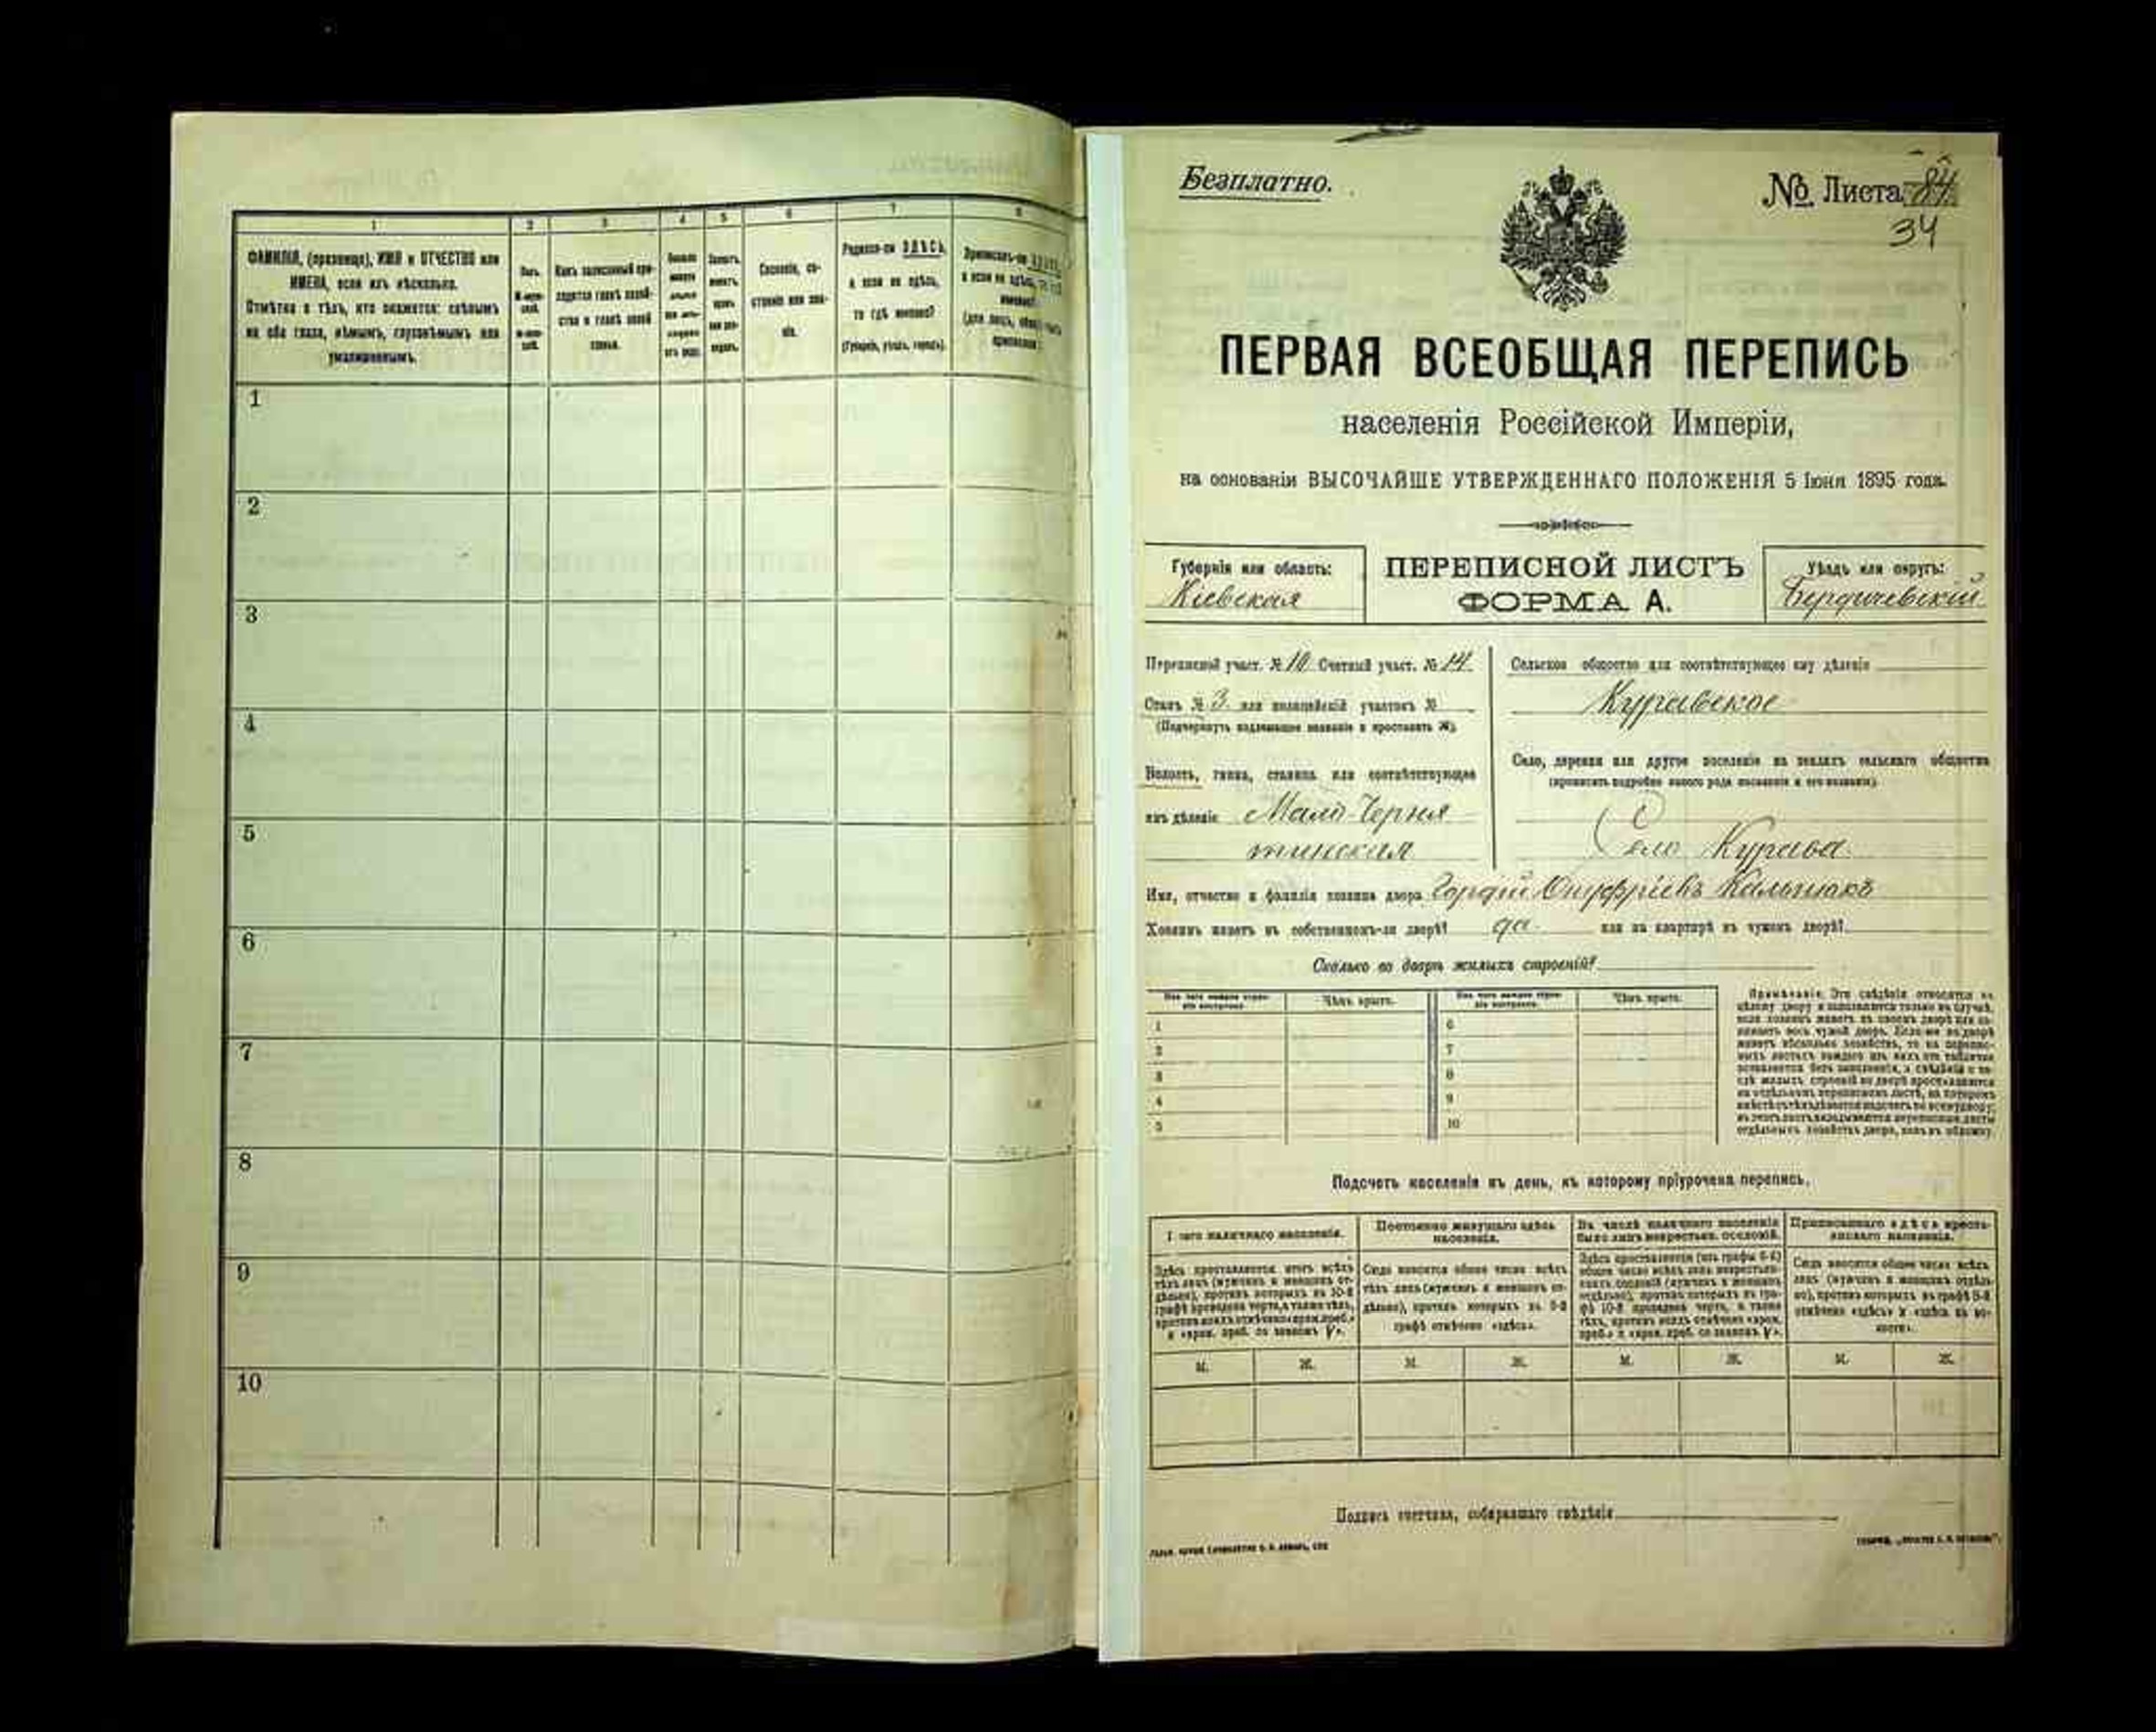 1
2
3
4
5
6
7
8
ФАМИЛІЯ, (прозвище), ИМЯ и ОТЧЕСТВО или
ИМЕНА, если ихъ нѣсколько.
Отмѣтка о тѣхъ, кто окажется: слѣпымъ
на оба глаза, нѣмымъ, глухонѣмымъ или
умалишеннымъ.
Полъ.
Какъ записанный при-
ходится главѣ хозяй-
ства и главѣ своей
семьи.
Сословіе, со-
стояніе или зва-
ніе.
Родился-ли ЗДѢСЬ,
а если не здѣсь,
то гдѣ именно?
(Губернія, уѣздъ, городъ).
1
2
3
4
5
6
7
8
9
10
Безплатно.
№ Листа 84
34
ПЕРВАЯ ВСЕОБЩАЯ ПЕРЕПИСЬ
населенія Россійской Имперіи,
на основаніи ВЫСОЧАЙШЕ УТВЕРЖДЕННАГО ПОЛОЖЕНІЯ 5 Іюня 1895 года.
Губернія или область:
Кіевская
ПЕРЕПИСНОЙ ЛИСТЪ
ФОРМА А.
Уѣздъ или округъ:
Бердичевскій
Переписной участ. № 10 Счетный участ. № 14
Станъ № 3 или полицейскій участокъ №
(Подчеркнуть надлежащее названіе и проставить №).
Волость, гмина, станица или соотвѣтствующее
имъ дѣленіе Мало-Черня
тинская
Сельское общество или соотвѣтствующее ему дѣленіе
Куравское
Село, деревня или другое поселеніе на земляхъ сельскаго общества
(прописать подробно какого рода поселеніе и его названіе).
Село Курава
Имя, отчество и фамилія хозяина двора Гордій Онуфріевъ
Хозяинъ живетъ въ собственномъ-ли дворѣ? да или на квартирѣ въ чужомъ дворѣ?
Сколько во дворѣ жилыхъ строеній?
Изъ чего каждое строе-
ніе выстроено.
Чѣмъ крыто.
Изъ чего каждое строе-
ніе выстроено.
Чѣмъ крыто.
1
2
3
4
5
6
7
8
9
10
Примѣчаніе. Эти свѣдѣнія относятся къ
цѣлому двору и заполняются только въ случаѣ,
если хозяинъ живетъ въ своемъ дворѣ или за-
нимаетъ весь чужой дворъ. Если-же во дворѣ
живетъ нѣсколько хозяйствъ, то на перепис-
ныхъ листахъ каждаго изъ нихъ эта табличка
оставляется безъ заполненія, а свѣдѣнія о чи-
слѣ жилыхъ строеній во дворѣ проставляются
на отдѣльномъ переписномъ листѣ, на которомъ
вмѣстѣ съ тѣмъ дѣлается подсчетъ по всему двору;
въ этотъ листъ вкладываются переписные листы
отдѣльныхъ хозяйствъ двора, какъ въ обложку.
Подсчетъ населенія въ день, къ которому пріурочена перепись.
Всего наличнаго населенія.
Постоянно живущаго здѣсь
населенія.
Въ числѣ наличнаго населенія
было лицъ некрестьян. сословій.
Приписаннаго здѣсь кресть-
янскаго населенія.
Здѣсь проставляется итогъ всѣхъ
тѣхъ лицъ (мужчинъ и женщинъ от-
дѣльно), противъ которыхъ въ 10-й
графѣ проведена черта, а также тѣхъ,
противъ коихъ отмѣчено «врем. преб.»
и «врем. преб. со знакомъ V».
Сюда вносится общее число всѣхъ
тѣхъ лицъ (мужчинъ и женщинъ от-
дѣльно), противъ которыхъ въ 9-й
графѣ отмѣчено «здѣсь».
Здѣсь проставляется (изъ графы 6-й)
общее число всѣхъ лицъ некрестьян-
скихъ сословій (мужчинъ и женщинъ
отдѣльно), противъ которыхъ въ гра-
фѣ 10-й проведена черта, а также
тѣхъ, противъ коихъ отмѣчено «врем.
преб.» и «врем. преб. со знакомъ V».
Сюда вносится общее число всѣхъ
лицъ (мужчинъ и женщинъ отдѣль-
но), противъ которыхъ въ графѣ 8-й
отмѣчено «здѣсь» и «здѣсь въ во-
лости».
М. Ж. М. Ж. М. Ж. М. Ж.
Подпись счетчика, собиравшаго свѣдѣнія